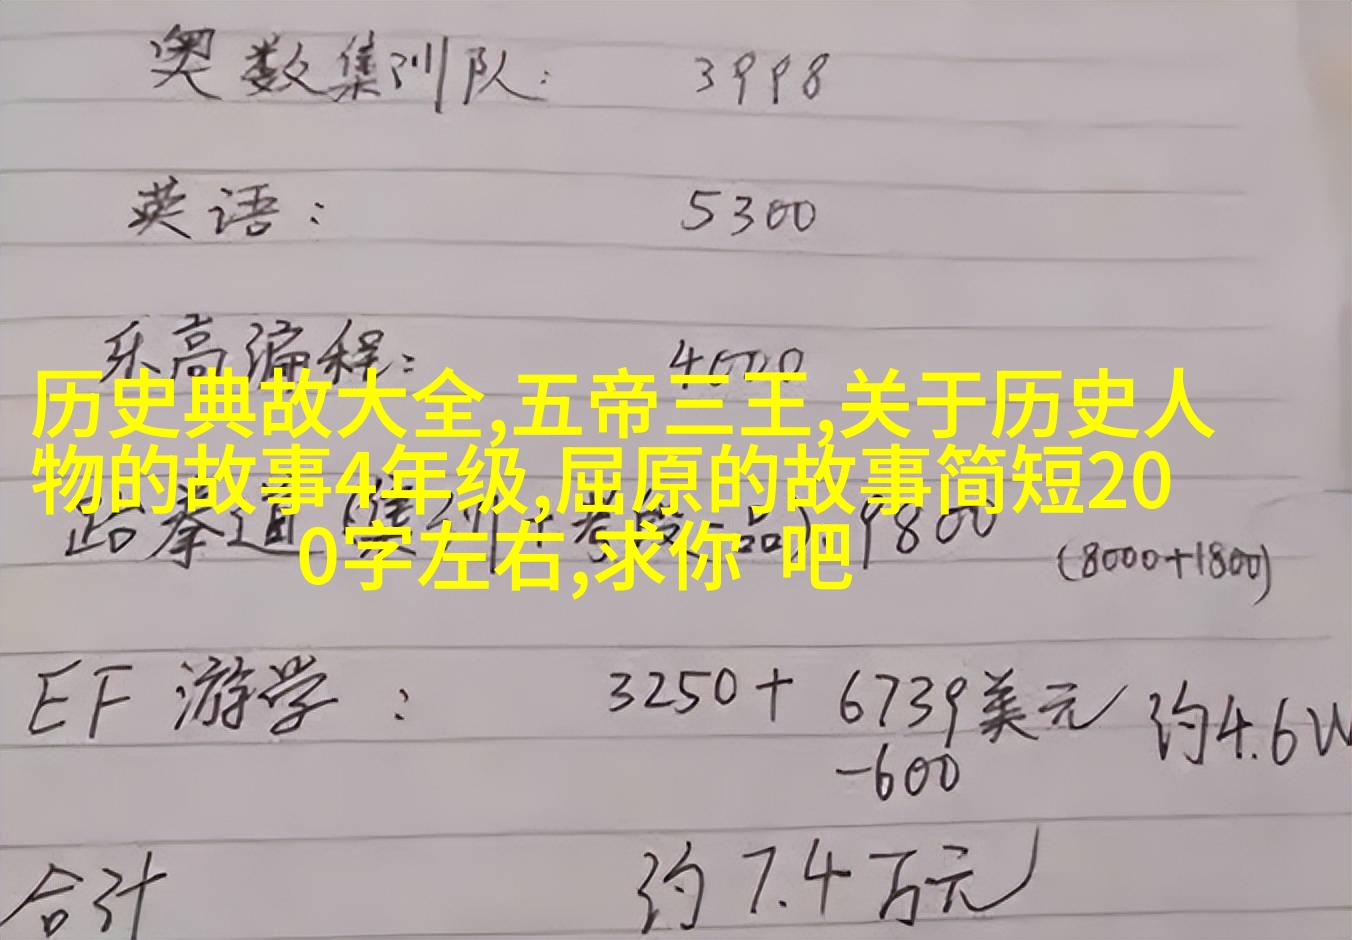 奥数集训队: 3998
英语: 5300
乐高编程: 4000
历史典故大全,五帝三王,关于历史人
物的故事4年级,屈原的故事简短20
0字左右,求你 吧
跆拳道(集训+考段一品). 9800 (8000+1800)
EF 游学: 3250+ 6739美元 约4.6W
-600
合计 约7.4万元